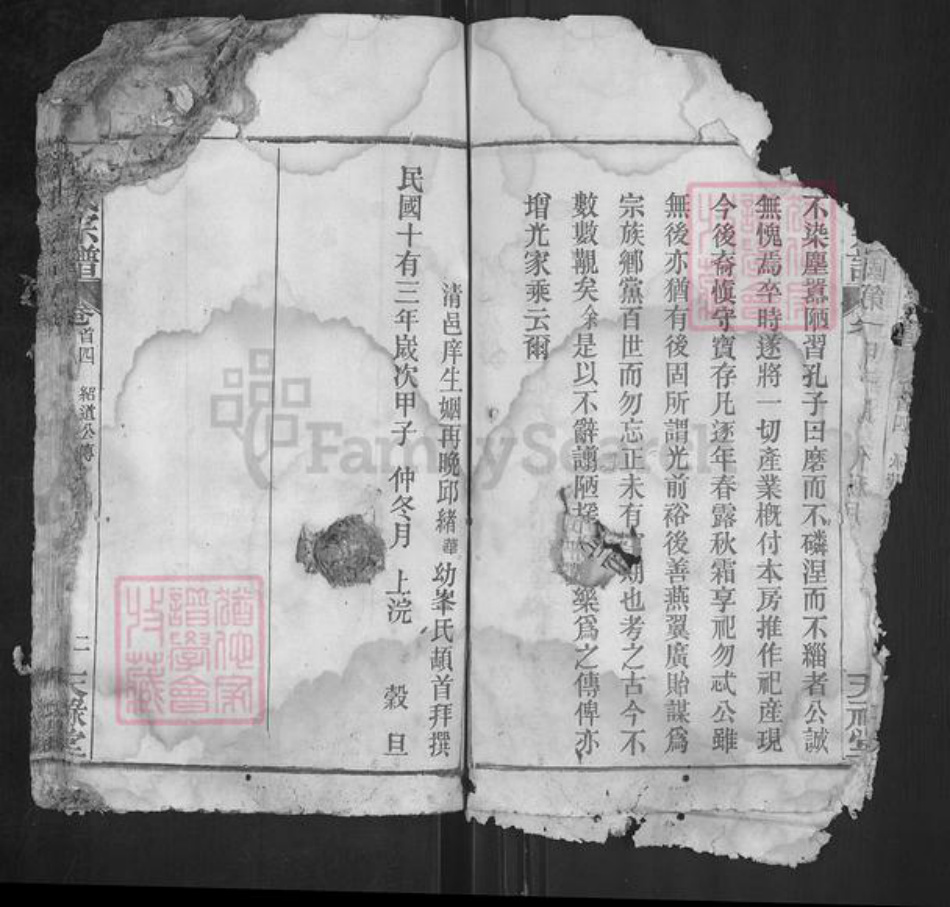 不染塵囂陋習孔子曰磨而不磷涅而不緇者公誠
無愧焉卒時遂將一切產業概付本房推作祀產現
今後裔愼守寶存凡逐年春露秋霜享祀勿忒公雖
無後亦猶有後固所謂光前裕後善燕翼廣貽謀爲
宗族鄉黨百世而勿忘正未有期也考之古今不
數數覯矣余是以不辭謭陋樂爲之傳俾亦
增光家乘云爾
清邑庠生姻再晚邱緒華幼峯氏頓首拜撰
民國十有三年歲次甲子 仲冬月 上浣 穀旦
宗譜 卷首四 紹道公傳 二 天祿堂
FamilySearch